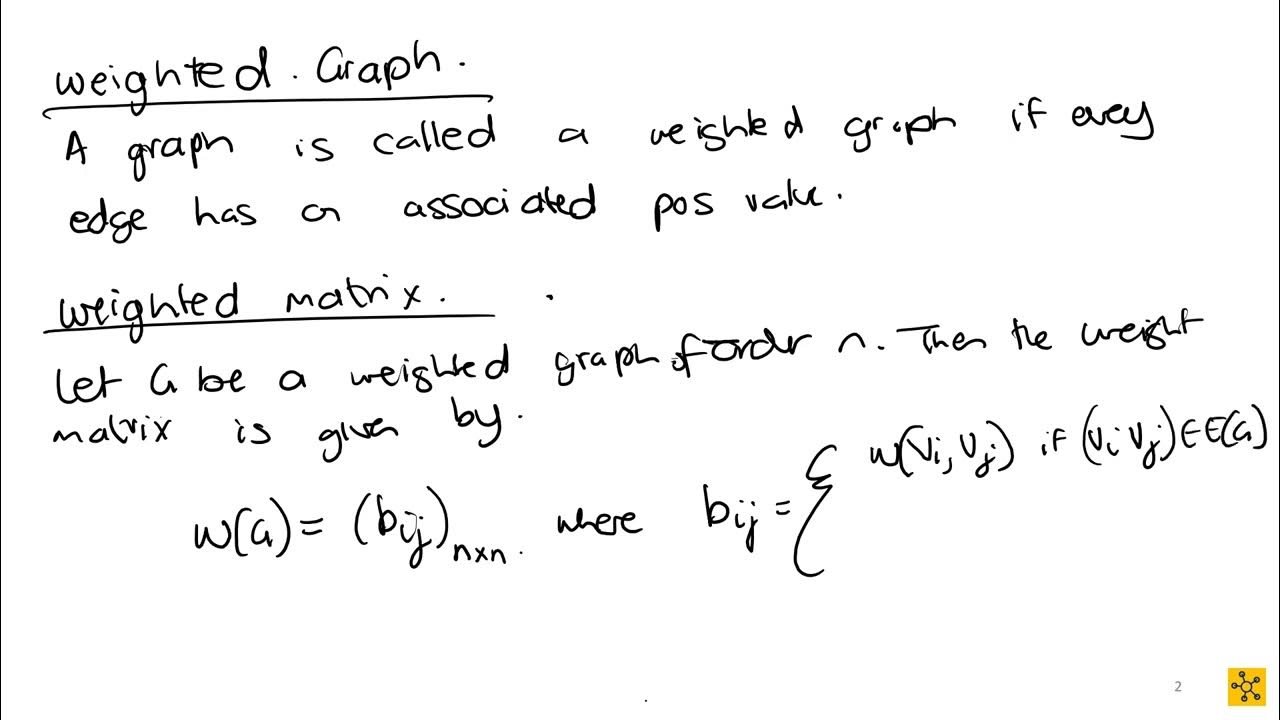 weighted. Graph.
A graph is called a weighted graph if every
edge has an associated pos value.
weighted matrix.
Let G be a weighted graph of order n. Then the weight
matrix is given by.
W(G) = (bij)n×n. where bij = { w(vi, vj) if (vi vj) ∈ E(G)
2